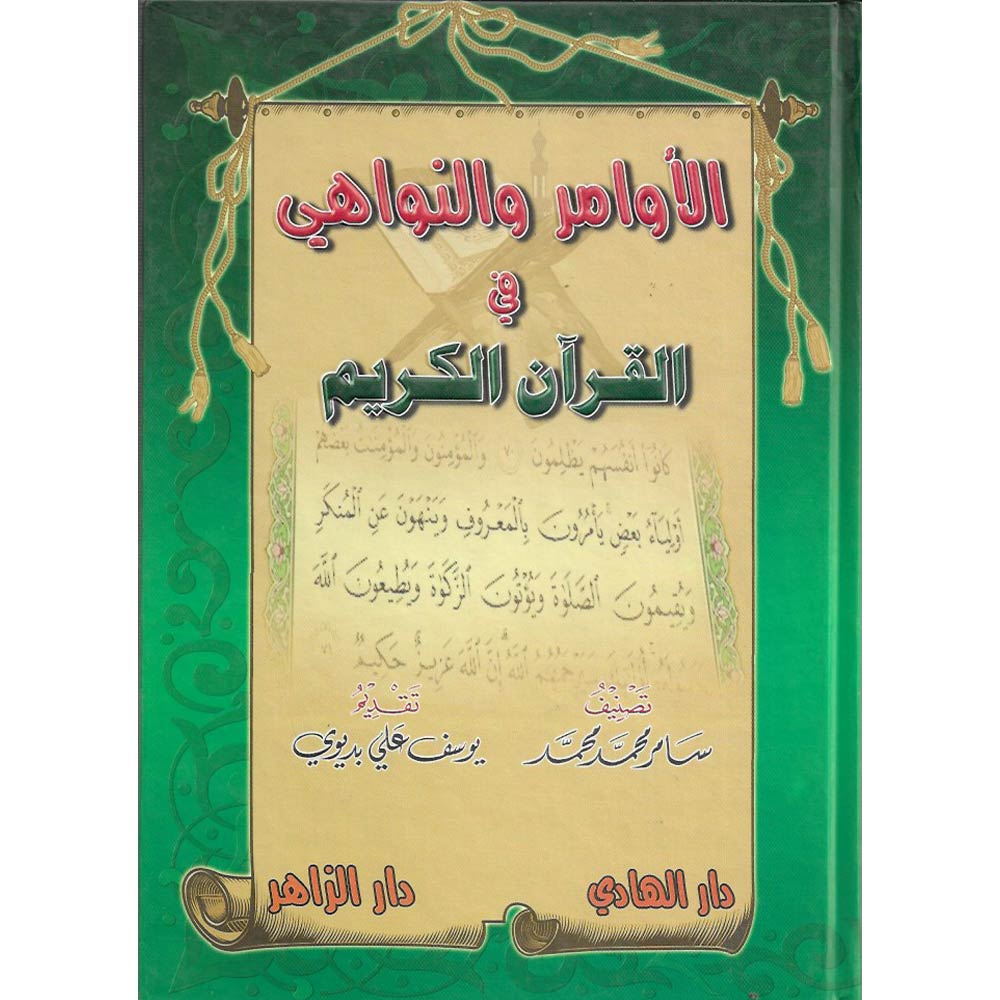 الأوامر والنواهي
في
القرآن الكريم
كَانُوٓا۟ أَنفُسَهُمْ يَظْلِمُونَ ٧٠ وَٱلْمُؤْمِنُونَ وَٱلْمُؤْمِنَٰتُ بَعْضُهُمْ
أَوْلِيَآءُ بَعْضٍ يَأْمُرُونَ بِٱلْمَعْرُوفِ وَيَنْهَوْنَ عَنِ ٱلْمُنكَرِ
وَيُقِيمُونَ ٱلصَّلَوٰةَ وَيُؤْتُونَ ٱلزَّكَوٰةَ وَيُطِيعُونَ ٱللَّهَ
أُو۟لَٰٓئِكَ سَيَرْحَمُهُمُ ٱللَّهُ إِنَّ ٱللَّهَ عَزِيزٌ حَكِيمٌ ٧١
تَصْنِيْفُ
سامر محمَّد محمَّد
تَقْدِيْمُ
يوسف علي بديوي
دار الهادي
دار الزاهر